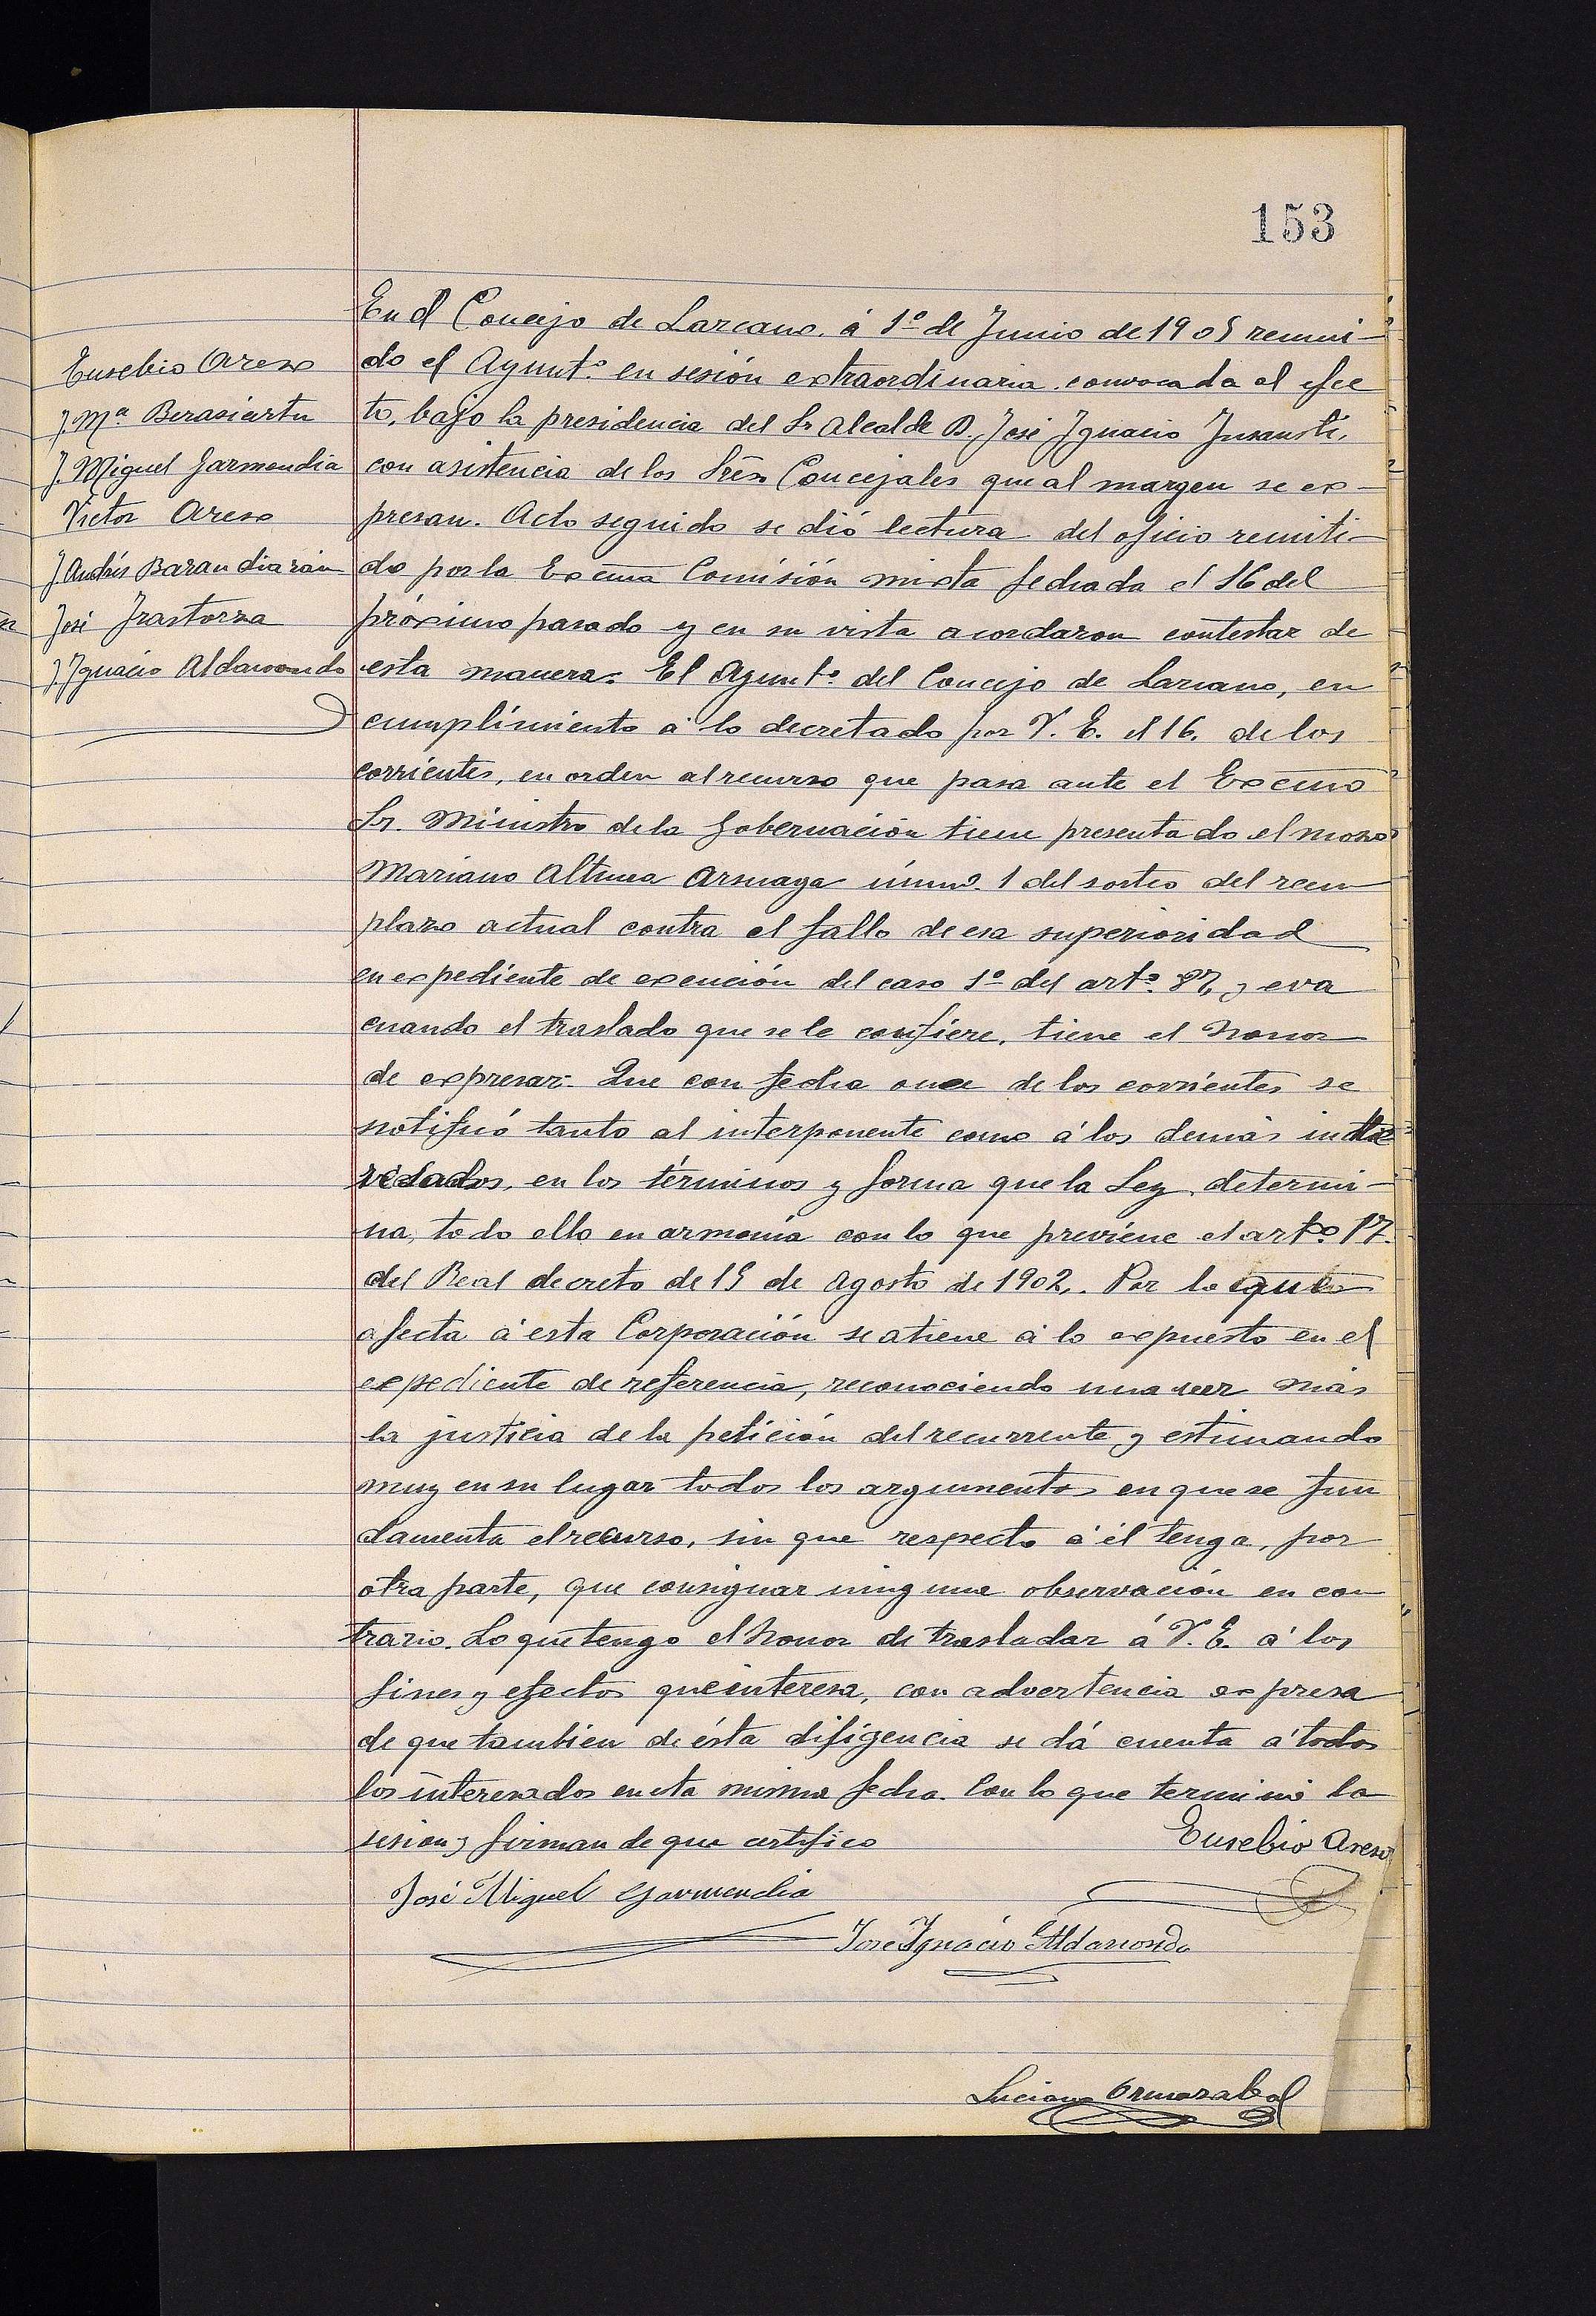 153
Eusebio Areso
J. Mª. Berasiartu
J. Miguel Garmendia
Victor Areso
J. Andrés Barandiarán
José Irastorza
J. Ignacio Aldasoro
En el Concejo de Lazcano, á 1º de Junio de 1905 reuni-
do el Ayuntº. en sesión extraordinaria convocada al efec
to, bajo la presidencia del Sr Alcalde D. José Ignacio Insausti,
con asistencia de los Srēs. Concejales que al margen se ex-
presan. Acto seguido se dió lectura del oficio remiti-
do por la Excma Comisión mixta fechada el 16 del
próximo pasado y en su vista acordaron contestar de
esta manera: El Ayuntº. del Concejo de Lazcano, en
cumplimiento á lo decretado por V. E. el 16, de los
corrientes, en orden al recurso que para ante el Excmo
Sr. Ministro de la Gobernación tiene presentado el mozo
Mariano Altuna Arsuaga númº. 1 del sorteo del reem
plazo actual contra el fallo de esa superioridad
en expediente de exención del caso 1º del artº. 87, y eva
cuando el traslado que se le confiere, tiene el honor
de expresar: Que con fecha once de los corrientes se
notificó tanto al interponente como á los demás inte
resados, en los términos y forma que la Ley determi-
na, todo ello en armonía con lo que previene el artº. 17.
del Real decreto de 15 de Agosto de 1902. Por lo que
afecta á esta Corporación se atiene á lo expuesto en el
expediente de referencia, reconociendo una vez más
la justicia de la petición del recurrente y estimando
muy en su lugar todos los argumentos en que se fun
damenta el recurso, sin que respecto á él tenga, por
otra parte, que consignar ninguna observación en con
trario. Lo que tengo el honor de trasladar á V. E. á los
fines y efectos que interesa, con advertencia expresa
de que también de ésta diligencia se dá cuenta á todos
los interesados en esta misma fecha. Con lo que terminó la
sesion y firman de que certifico
Eusebio Areso
José Miguel Garmendia
José Ignacio Aldasoro
Luciano Ormazabal